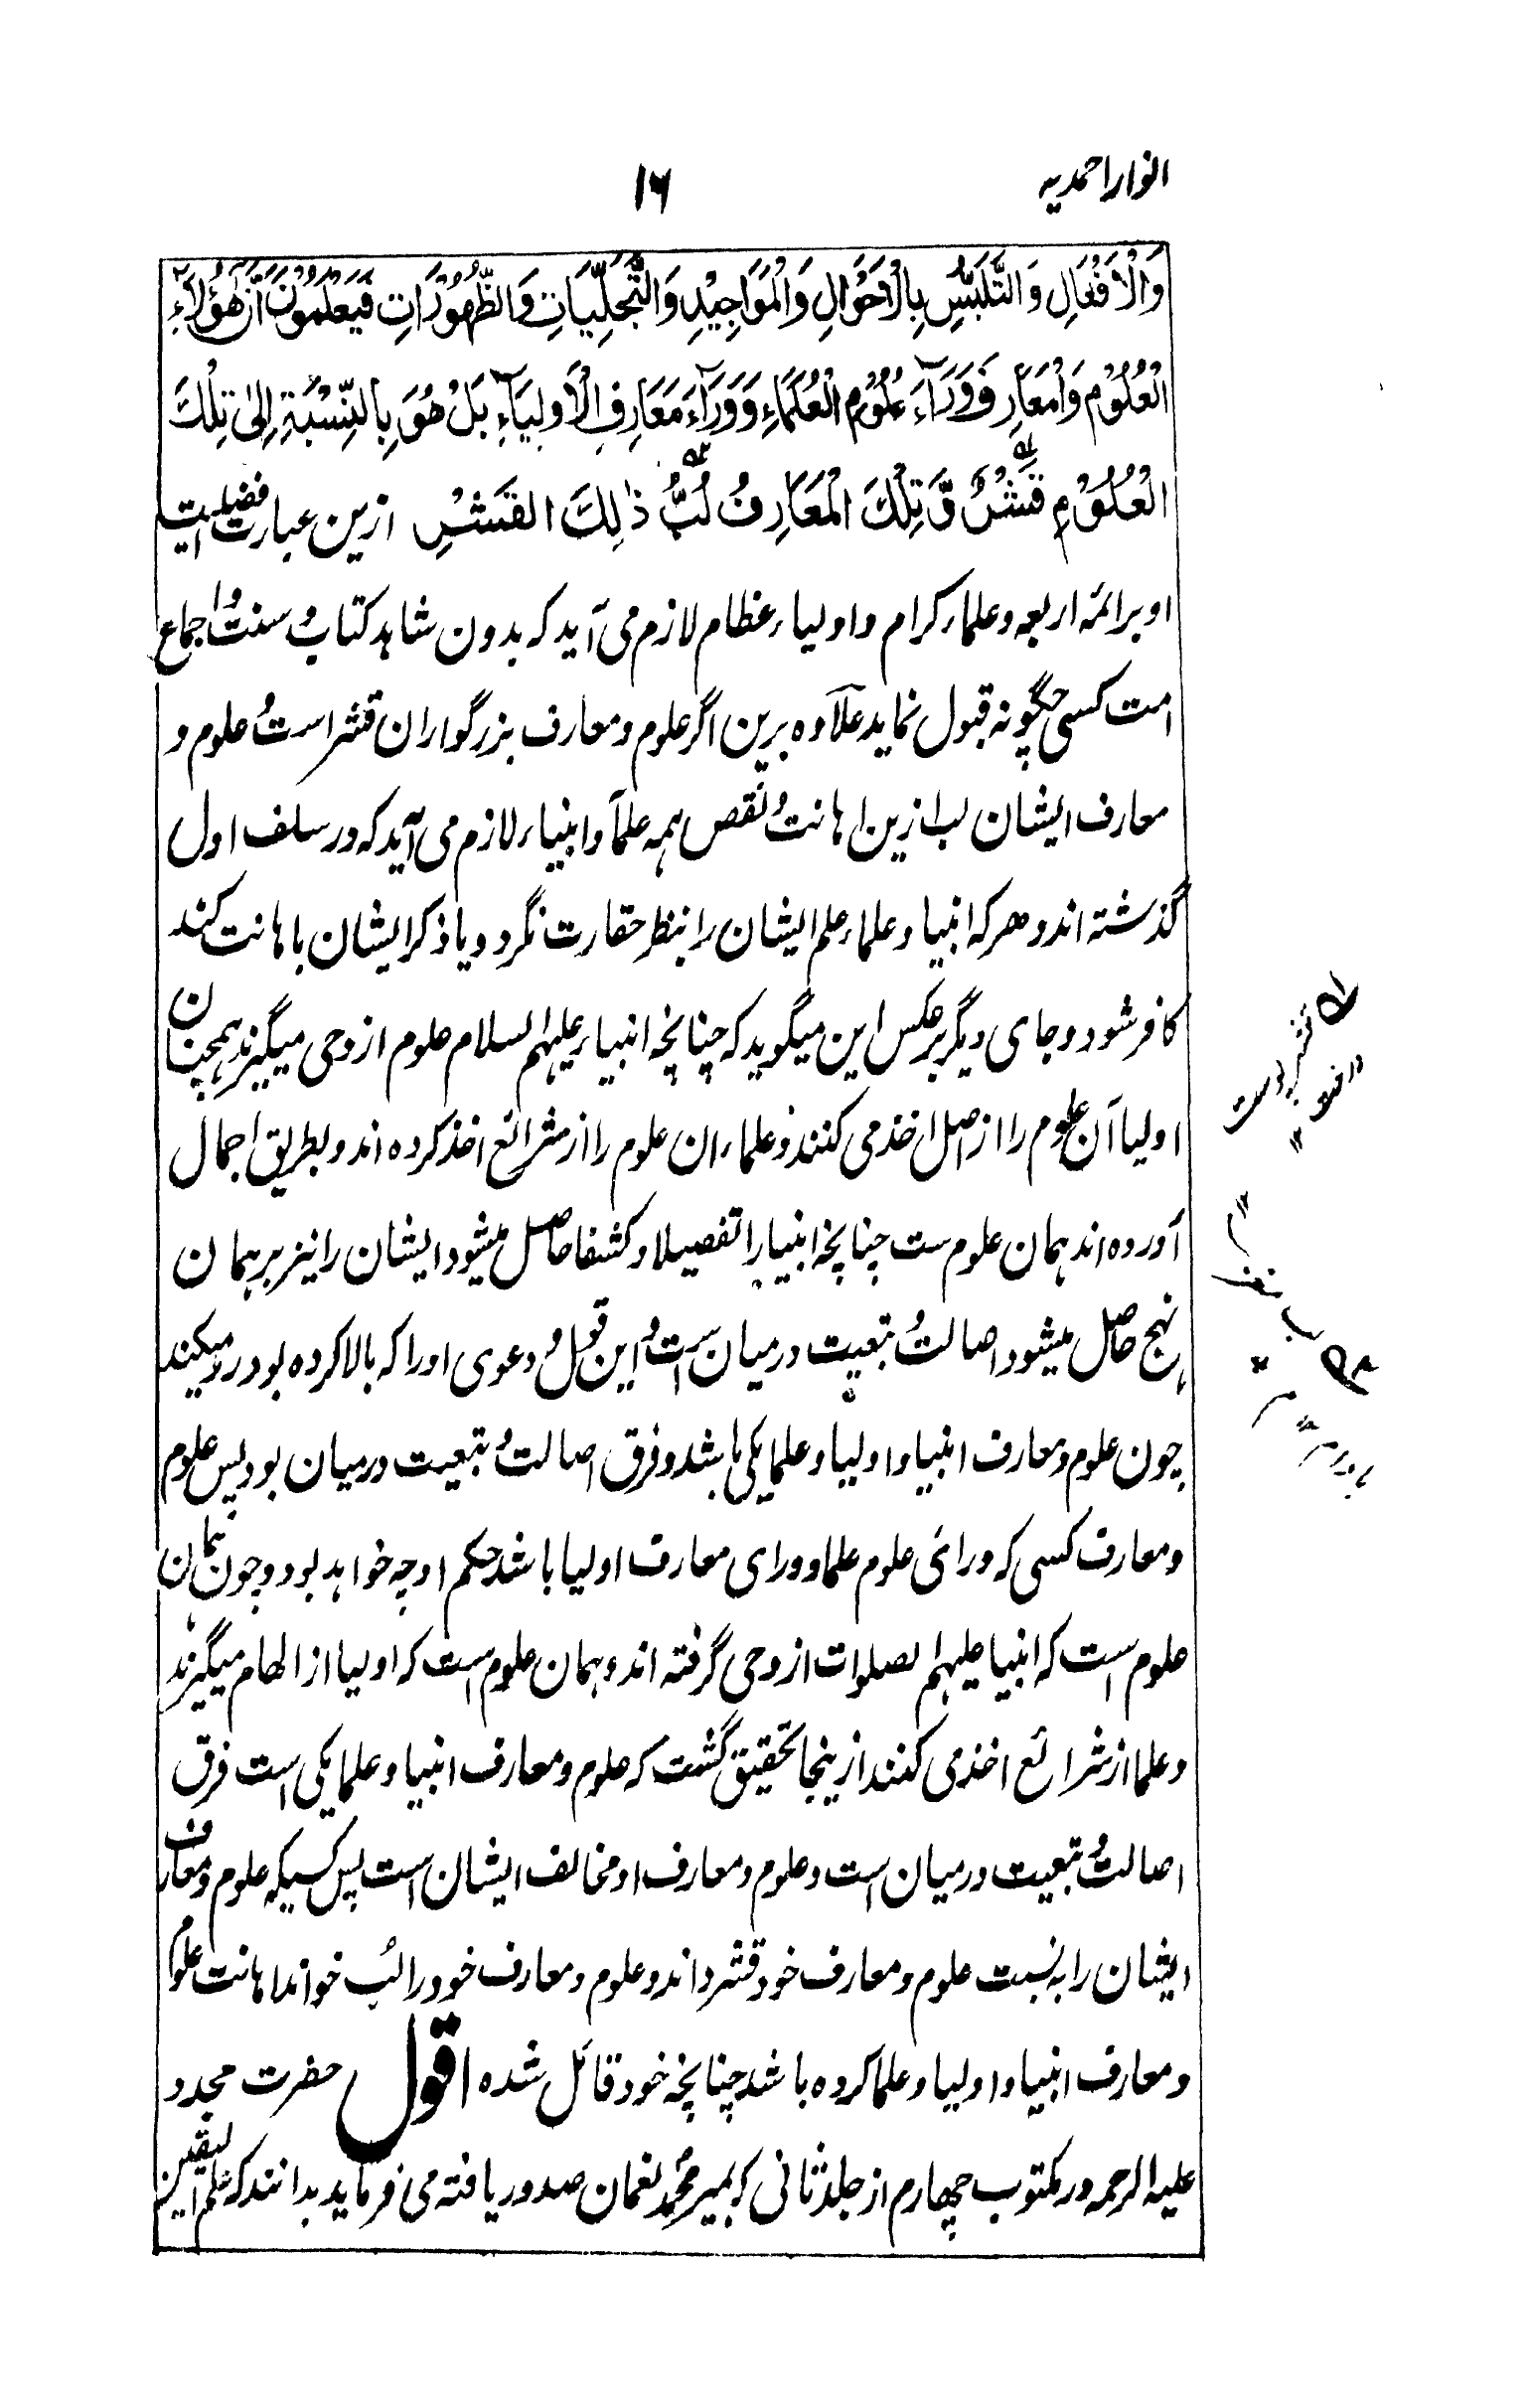 انوار احمدیہ
۱۶
وَالْاَفْعَالِ وَالتَّلَبُّسِ بِالْاَحْوَالِ وَالْمَوَاجِيْدِ وَالتَّجَلِّيَاتِ وَالظُّهُوْرَاتِ فَيَعْلَمُوْنَ اَنَّ هٰؤُلَآءِ
الْعُلُوْمِ وَالْمَعَارِفِ وَرَآءَ عُلُوْمِ الْعُلَمَاءِ وَوَرَآءَ مَعَارِفِ الْاَوْلِيَآءِ بَلْ هُوَ بِالنِّسْبَةِ اِلٰى تِلْكَ
الْعُلُوْمِ قَشْرٌ وَّ تِلْكَ الْمَعَارِفُ لُبُّ ذٰلِكَ القَشْرِ ازین عبارت فضلیت
او برائمہ اربعہ و علماء کرام و اولیاء عظام لازم می آید کہ بدون شاہد کتاب و سنت و اجماع
امت کسی چگونہ قبول نماید علاوہ برین اگر علوم و معارف بزرگواران قشر است و علوم و
معارف ایشان لب ازین اہانت و نقص ہمہ علما و انبیاء لازم می آید کہ در سلف اول
گذشتہ اند و ھر کہ انبیا و علماء علم ایشان را بنظر حقارت نگرد و یا ذکر ایشان باہانت کند
کافر شود و جای دیگر بر عکس این میگوید کہ چنانچہ انبیاء علیہم السلام علوم از وحی میگیرند ہمچنان
اولیا آن علوم را از اصل اخذ می کنند و علماء ان علوم را از شرائع اخذ کردہ اند و بطریق اجمال
آوردہ اند ہمان علوم ست چنانچہ انبیا را تفصیلا و کشفا حاصل میشود ایشان را نیز بر ہمان
نہج حاصل میشود اصالت و تبعیت درمیان ست و این قول و دعوی او را کہ بالا کردہ بود رد میکند
چون علوم و معارف انبیا و اولیا و علما یکی باشد و فرق اصالت و تبعیت درمیان بود پس علوم
و معارف کسی کہ ورائی علوم علما و ورای معارف اولیا باشد حکم او چہ خواہد بود و چون ہمان
علوم است کہ انبیا علیہم لصلوات از وحی گرفتہ اند و ہمان علوم است کہ اولیا از الھام میگیرند
و علما از شرائع اخذ می کنند ازینجا تحقیق گشت کہ علوم و معارف انبیا و علما یکی است فرق
اصالت و تبعیت درمیان است و علوم و معارف او مخالف ایشان است پس کسیکہ علوم و معارف
ایشان را بہ نسبت علوم و معارف خود قشر داند و علوم و معارف خود را لُب خواند اہانت علوم
و معارف انبیا و اولیا و علما کردہ باشد چنانچہ خود قائل شدہ اقول حضرت مجدد
علیہ الرحمہ در مکتوب چھارم از جلد ثانی کہ بمیر محمد نعمان صدور یافتہ می فرماید بدانند کہ علم الیقین
قشر پوست
درخت ۱۲
لب مغز